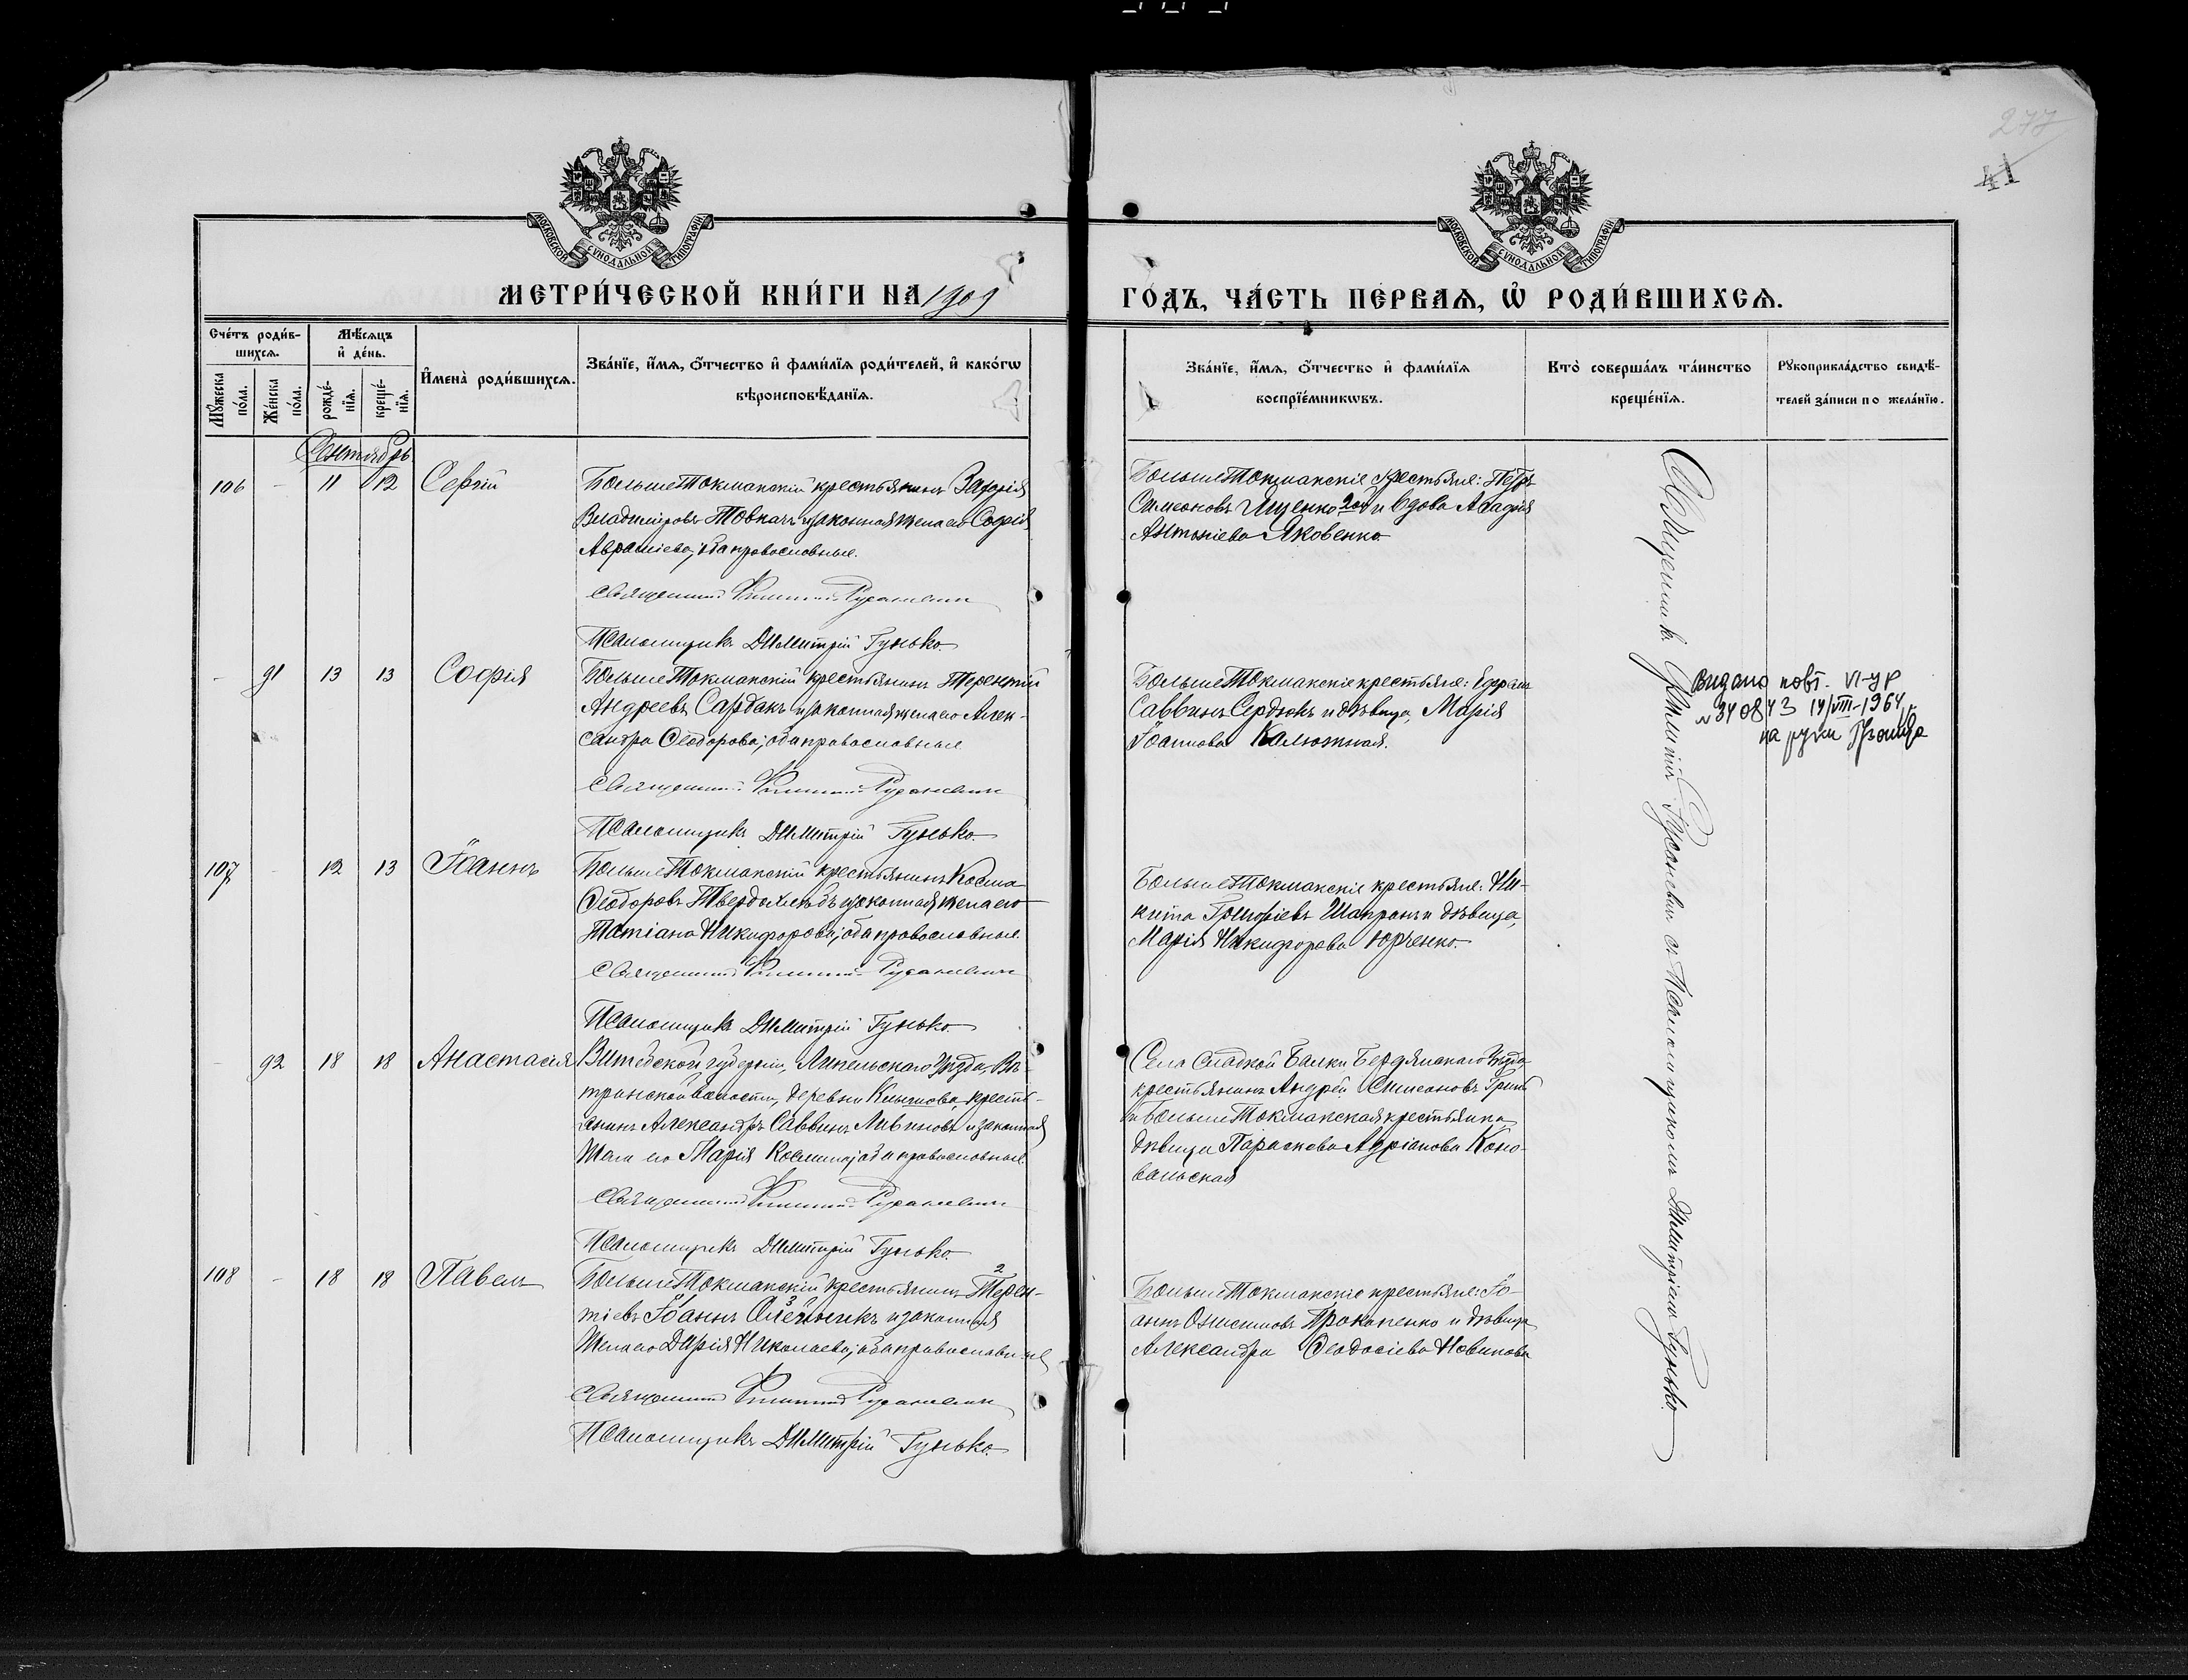 277
41
МОСКОВСКОЙ СУНОДАЛЬНОЙ ТИПОГРАФІИ
МОСКОВСКОЙ СУНОДАЛЬНОЙ ТИПОГРАФІИ
МЕТРИ́ЧЕСКОЙ КНИ́ГИ НА 1909
ГО́ДЪ, ЧА́СТЬ ПЕ́РВАѦ, Ѡ҆ РОДИ́ВШИХСѦ.
Сче́тъ роди́в-
шихсѧ.
Мѣ́сѧцъ
и҆ де́нь.
Мꙋ́жеска
по́ла.
Же́нска
по́ла.
рожде́-
нїѧ.
креще́-
нїѧ.
И҆мена̀ роди́вшихсѧ.
Зва́нїе, и҆́мѧ, ѻ҆́тчество и҆ фами́лїѧ роди́телей, и҆ како́гѡ
вѣроисповѣ́данїѧ.
Зва́нїе, и҆́мѧ, ѻ҆́тчество и҆ фами́лїѧ
воспрїе́мникѡвъ.
Кто̀ соверша́лъ та́инство
креще́нїѧ.
Рꙋкоприкла́дство свидѣ́-
телей за́писи по жела́нїю.
Сентябрь
106 - 11 12 Сергій
БольшеТокмакскій крестьянинъ Захарія
Владиміровъ Товкачъ и законная жена его Софія
Авраміева, оба православные.
Священникъ Филиппъ Русаневичъ
Псаломщикъ Димитрій Гунько.
БольшеТокмакскіе крестьяне: Петръ
Симеоновъ Ищенко 2ой и вдова Агафія
Антоніева Яковенко.
- 91 13 13 Софія
БольшеТокмакскій крестьянинъ Терентій
Андреевъ Сардакъ и законная жена его Алек-
сандра Ѳеодорова, оба православные
Священникъ Филиппъ Русаневичъ
Псаломщикъ Димитрій Гунько.
БольшеТокмакскіе крестьяне: Ефремъ
Саввинъ Сердюкъ и дѣвица Марія
Іоаннова Калюжная.
видано повт. VI-УР
№ 340843 14/VIII-1964 р
на руки
107 - 12 13 Іоаннъ
БольшеТокмакскій крестьянинъ Косма
Ѳеодоровъ Твердохлѣбъ и законная жена его
Татіана Никифорова, оба православные.
Священникъ Филиппъ Русаневичъ
Псаломщикъ Димитрій Гунько.
БольшеТокмакскіе крестьяне: Ни-
кита Григоріевъ Шапранъ и дѣвица
Марія Никифорова Юрченко.
- 92 18 18 Анастасія
Витебской губерніи, Лепельскаго уѣзда, Вѣ-
тринской волости, деревни крестья-
янинъ Александръ Саввинъ и законная
жена его Марія Космина, оба православные.
Священникъ Филиппъ Русаневичъ
Псаломщикъ Димитрій Гунько.
Села Сладкой Балки Бердянскаго уѣзда,
крестьянинъ Андрей Симеоновъ Гриш
и БольшеТокмакская крестьянка
дѣвица Параскева Адріанова Коно-
вальская
108 - 18 18 Павелъ
БольшеТокмакскій крестьянинъ Терен-
тіевъ Іоаннъ Олейникъ и законная
жена его Дарія Николаева, оба православные
Священникъ Филиппъ Русаневичъ
Псаломщикъ Димитрій Гунько.
БольшеТокмакскіе крестьяне: Іо-
аннъ Онисимовъ Прокопенко и дѣвица
Александра Ѳеодосіева Новикова
Священникъ Филиппъ Русаневичъ съ Псаломщикомъ Димитріемъ Гунько.